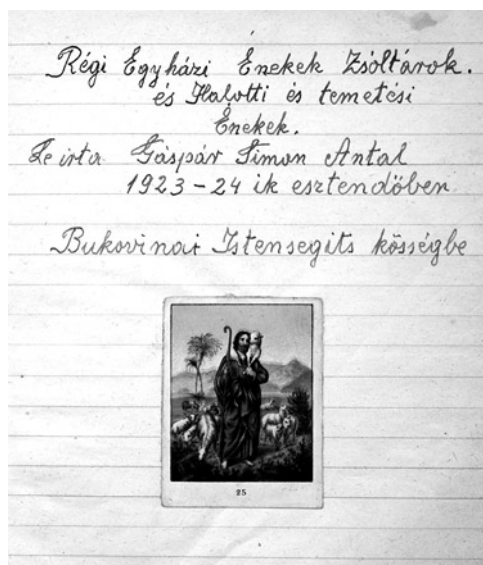 Régi Egyházi Énekek Zsóltárok.
és Halotti és temetési
Énekek.
Le irta Gáspár Simon Antal
1923-24 ik esztendőben
Bukovinai Istensegits kösségbe
25